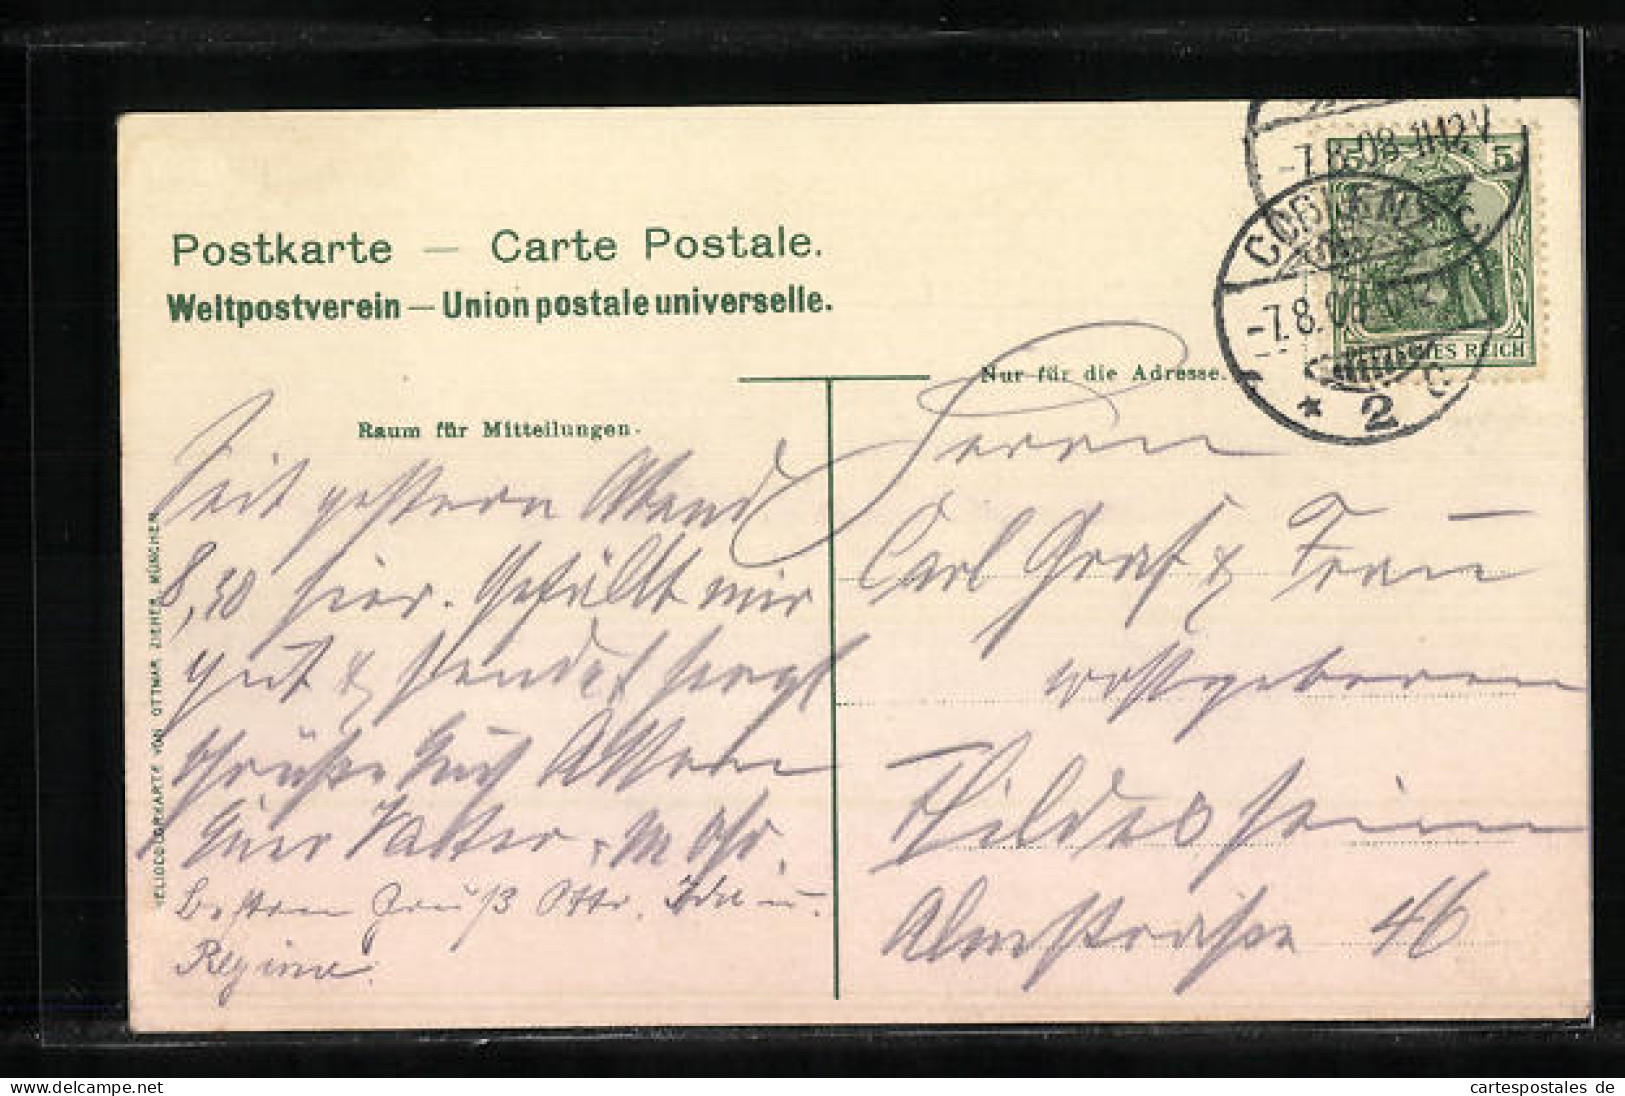 Postkarte — Carte Postale.
Weltpostverein — Union postale universelle.
Nur für die Adresse.
Raum für Mitteilungen.
HELIOCOLORKARTE VON OTTMAR ZIEHER, MÜNCHEN
5
DEUTSCHES REICH
-7.8.08. 11-12.V
COBLENZ
-7.8.08
* 2 c
Seit gestern Abend
8,50 hier. Gefällt mir
gut & sendet herzl
Grüße Euch Allen
Euer Vater
besten Gruß Otto,
Regine.
Herrn
Carl Graf & Frau
Hildesheim
Almstraße 46
cartespostales de